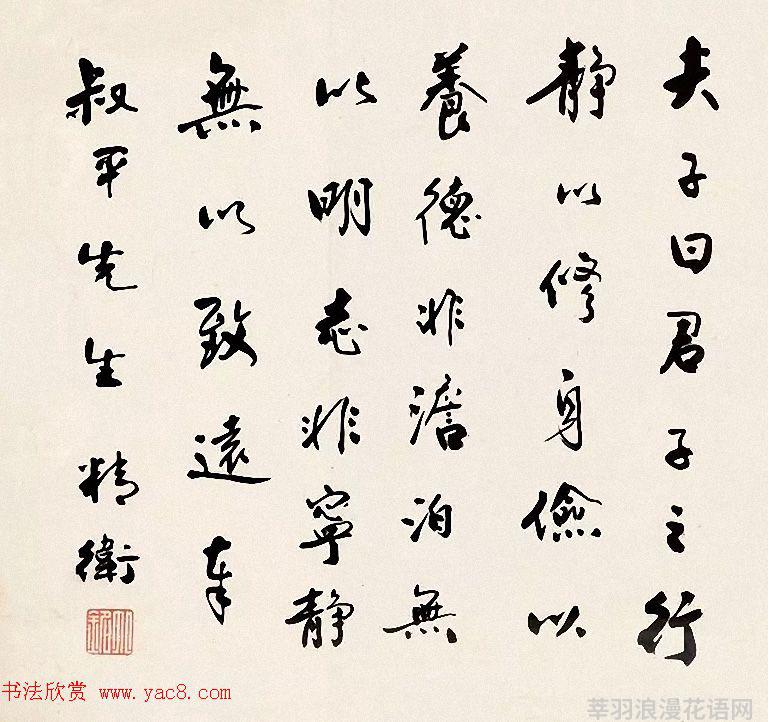 夫子曰君子之行
静以修身儉以
養德非澹泊無
以明志非寧静
無以致遠奉
叔平先生 精衛
书法欣赏 www.yac8.com
莘羽浪漫花语网